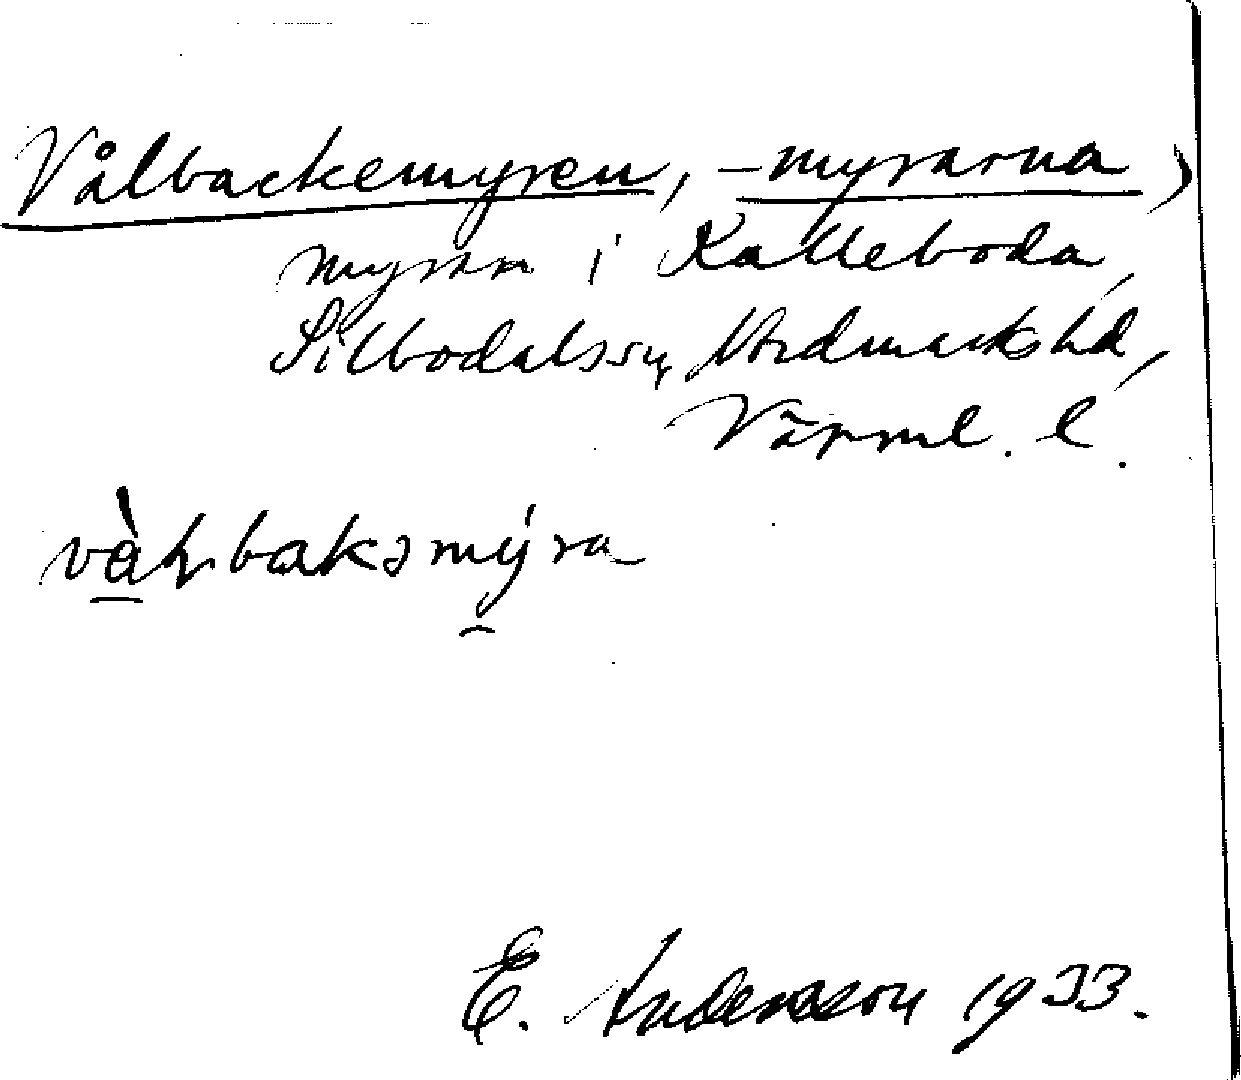 Vålbackemyren, -myrarna,
myrar i Kalleboda,
Silbodals sn, Nordmarks hd,
Värml. l.
E. Andersson 1933.